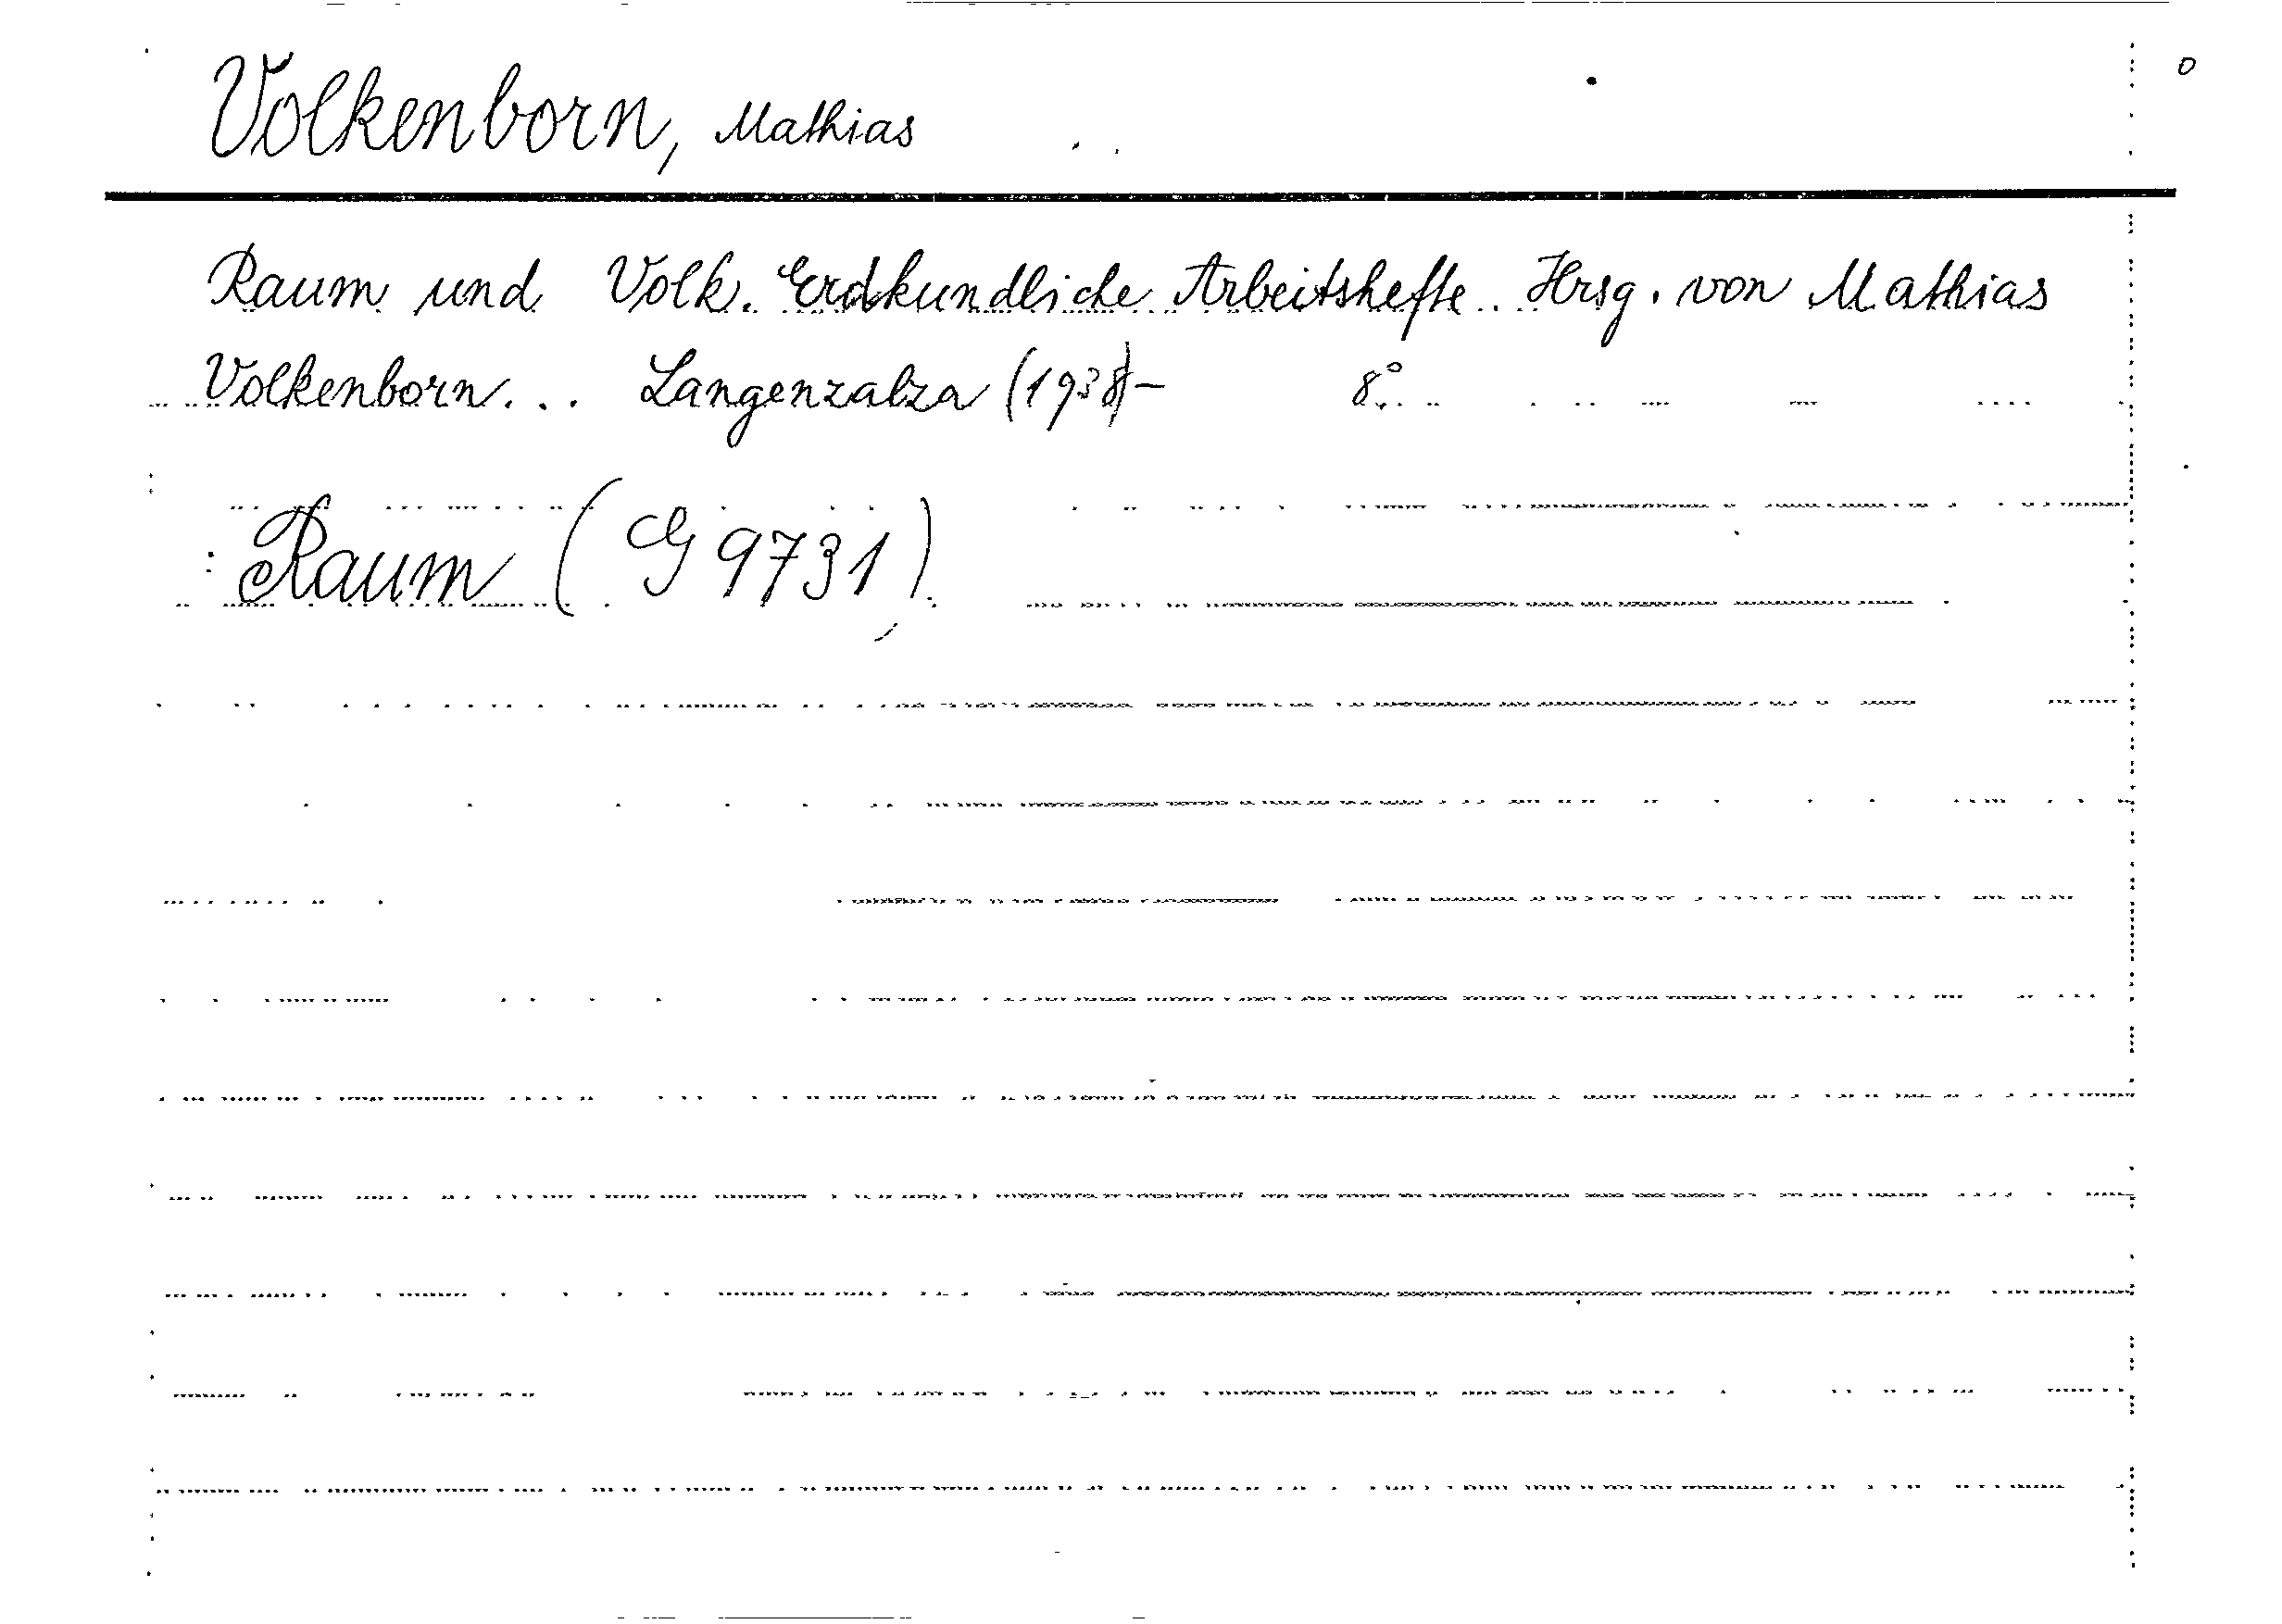 Volkenborn, Mathias
Raum und Volk. Erdkundliche Arbeitshefte. Hrsg. von Mathias
Volkenborn... Langenzalza (1938)- 8°
Raum (G 9731)